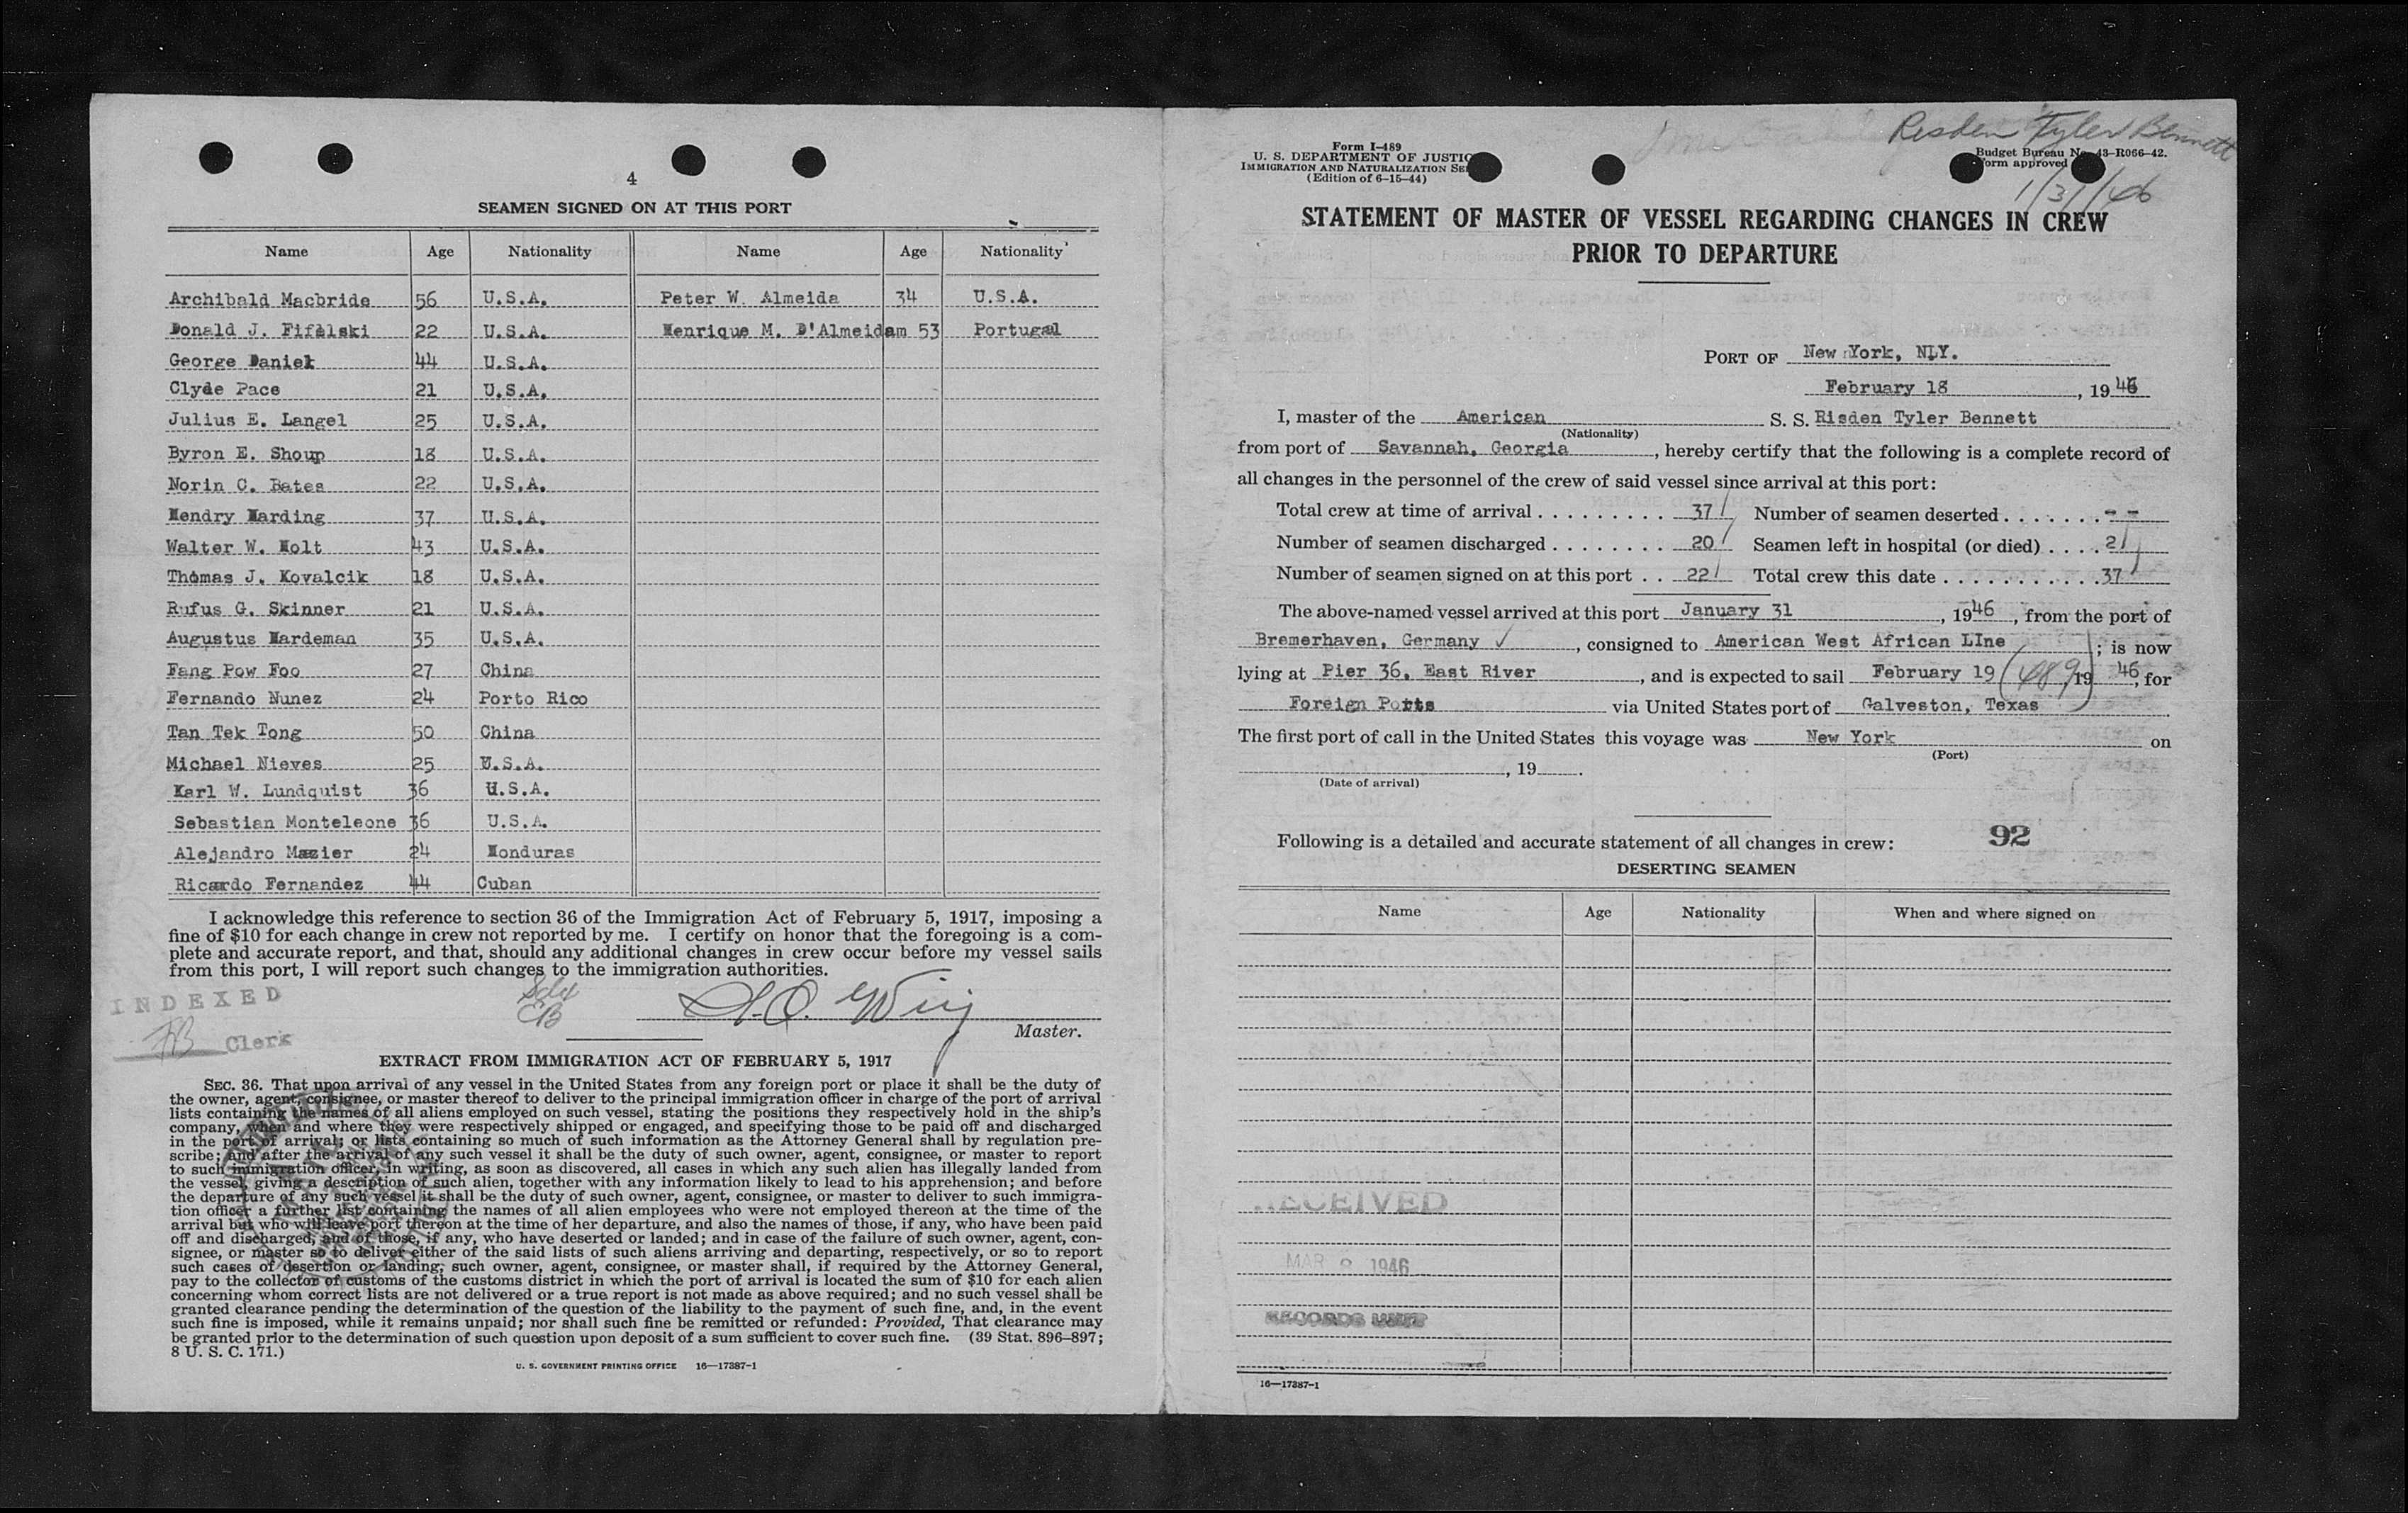 4
SEAMEN SIGNED ON AT THIS PORT
Name Age Nationality Name Age Nationality
Archibald Macbride 56 U.S.A. Peter W. Almeida 34 U.S.A.
Donald J. Fifelski 22 U.S.A. Henrique M. D'Almeidam 53 Portugal
George Daniel 44 U.S.A.
Clyde Pace 21 U.S.A.
Julius E. Langel 25 U.S.A.
Byron E. Shoup 18 U.S.A.
Norin C. Bates 22 U.S.A.
Hendry Harding 37 U.S.A.
Walter W. Holt 43 U.S.A.
Thomas J. Kovalcik 18 U.S.A.
Rufus G. Skinner 21 U.S.A.
Augustus Hardeman 35 U.S.A.
Fang Pow Foo 27 China
Fernando Nunez 24 Porto Rico
Tan Tek Tong 50 China
Michael Nieves 25 U.S.A.
Karl W. Lundquist 36 U.S.A.
Sebastian Monteleone 36 U.S.A.
Alejandro Mazier 24 Honduras
Ricardo Fernandez 44 Cuban
I acknowledge this reference to section 36 of the Immigration Act of February 5, 1917, imposing a
fine of $10 for each change in crew not reported by me. I certify on honor that the foregoing is a com-
plete and accurate report, and that, should any additional changes in crew occur before my vessel sails
from this port, I will report such changes to the immigration authorities.
INDEXED
Clerk
Master.
EXTRACT FROM IMMIGRATION ACT OF FEBRUARY 5, 1917
SEC. 36. That upon arrival of any vessel in the United States from any foreign port or place it shall be the duty of
the owner, agent, consignee, or master thereof to deliver to the principal immigration officer in charge of the port of arrival
lists containing the names of all aliens employed on such vessel, stating the positions they respectively hold in the ship's
company, when and where they were respectively shipped or engaged, and specifying those to be paid off and discharged
in the port of arrival; or lists containing so much of such information as the Attorney General shall by regulation pre-
scribe; and after the arrival of any such vessel it shall be the duty of such owner, agent, consignee, or master to report
to such immigration officer, in writing, as soon as discovered, all cases in which any such alien has illegally landed from
the vessel, giving a description of such alien, together with any information likely to lead to his apprehension; and before
the departure of any such vessel it shall be the duty of such owner, agent, consignee, or master to deliver to such immigra-
tion officer a further list containing the names of all alien employees who were not employed thereon at the time of the
arrival but who will leave port thereon at the time of her departure, and also the names of those, if any, who have been paid
off and discharged, and of those, if any, who have deserted or landed; and in case of the failure of such owner, agent, con-
signee, or master so to deliver either of the said lists of such aliens arriving and departing, respectively, or so to report
such cases of desertion or landing, such owner, agent, consignee, or master shall, if required by the Attorney General,
pay to the collector of customs of the customs district in which the port of arrival is located the sum of $10 for each alien
concerning whom correct lists are not delivered or a true report is not made as above required; and no such vessel shall be
granted clearance pending the determination of the question of the liability to the payment of such fine, and, in the event
such fine is imposed, while it remains unpaid; nor shall such fine be remitted or refunded: Provided, That clearance may
be granted prior to the determination of such question upon deposit of a sum sufficient to cover such fine. (39 Stat. 896–897;
8 U. S. C. 171.)
U. S. GOVERNMENT PRINTING OFFICE 16—17387-1
Risden Tyler Bennett
1/31/46
Form I-489
U. S. DEPARTMENT OF JUSTIC
IMMIGRATION AND NATURALIZATION SE
(Edition of 6-15-44)
Budget Bureau No. 43-R066-42.
Form approved
STATEMENT OF MASTER OF VESSEL REGARDING CHANGES IN CREW
PRIOR TO DEPARTURE
PORT OF New York, N.Y.
February 18, 1946
I, master of the American S. S. Risden Tyler Bennett
(Nationality)
from port of Savannah, Georgia, hereby certify that the following is a complete record of
all changes in the personnel of the crew of said vessel since arrival at this port:
Total crew at time of arrival . . . . . . . . . . 37 Number of seamen deserted . . . . . . . - -
Number of seamen discharged . . . . . . . . 20 Seamen left in hospital (or died) . . . . 2
Number of seamen signed on at this port . . 22 Total crew this date . . . . . . . . . . . . 37
The above-named vessel arrived at this port January 31, 1946, from the port of
Bremerhaven, Germany ✓, consigned to American West African LIne; is now
lying at Pier 36, East River, and is expected to sail February 19 (489) 1946, for
Foreign Ports via United States port of Galveston, Texas
The first port of call in the United States this voyage was New York on
(Port)
, 19 .
(Date of arrival)
Following is a detailed and accurate statement of all changes in crew: 92
DESERTING SEAMEN
Name Age Nationality When and where signed on
RECEIVED
MAR 1946
RECORDS UNIT
16—17387-1